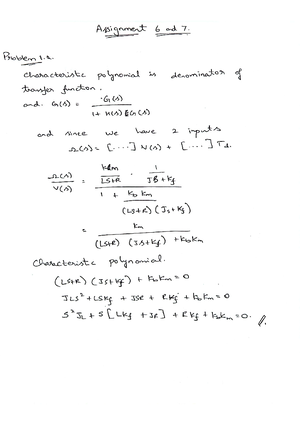 Assignment 6 ad 7.
Problem 1.2.
Characteristic polynomial is denominator of
transfer function.
and. G(s) = G(s) / 1 + H(s) G(s)
and since we have 2 inputs
Ω(s) = [....] V(s) + [....] Td.
Ω(s)/V(s) = Km/(LS+R) · 1/(JS+Kf) / 1 + KbKm/((LS+R)(JS+Kf))
= Km / (LS+R)(JS+Kf) + KbKm
Characteristic polynomial.
(LS+R) (JS+Kf) + KbKm = 0
JLS² + LSKf + JSR + RKf + KbKm = 0
S²JL + S[LKf + JR] + RKf + KbKm = 0.